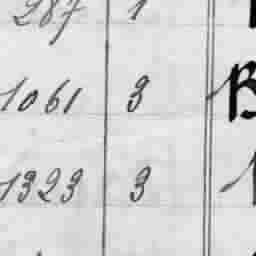 287 1
1061 3 B
1323 3